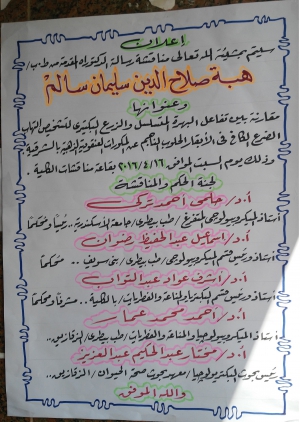 إعلان
سيتم بمشيئة الله تعالى مناقشة رسالة الدكتوراه المقدمة من ط.ب/
هبة صلاح الدين سليمان سالم
وعنوانها
مقارنة بين تفاعل البلمرة المتسلسل والزرع البكتيرى لتشخيص التهاب
الضرع الخافى فى الأبقار الحلوب الناجم عن المكورات العنقودية الذهبية بالشرقية
وذلك يوم السبت الموافق ٢٠١٦/٤/١٦ بقاعة مناقشات الكلية.
لجنة الحكم والمناقشة
أ.د/ حلمى أحمد تركى
أستاذ الميكروبيولوجى المتفرغ / طب بيطرى / جامعة الأسكندرية.. رئيساً ومحكماً
أ.د/ اسماعيل عبد الحفيظ رضوان
أستاذ ورئيس قسم الميكروبيولوجى - طب بيطرى / بنى سويف .. محكماً
أ.د/ أشرف عواد عبد التواب
أستاذ ورئيس قسم البكتريا والمناعة والفطريات / بالكلية .. مشرفاً ومحكماً
أ.د/ أحمد محمد عمار
أستاذ الميكروبيولوجيا والمناعة والفطريات / طب بيطرى / الزقازيق..
أ.د/ مختار عبد الحليم عبد العزيز
رئيس بحوث البكتريولوجيا / معهد بحوث صحة الحيوان / الزقازيق..
والله الموفق